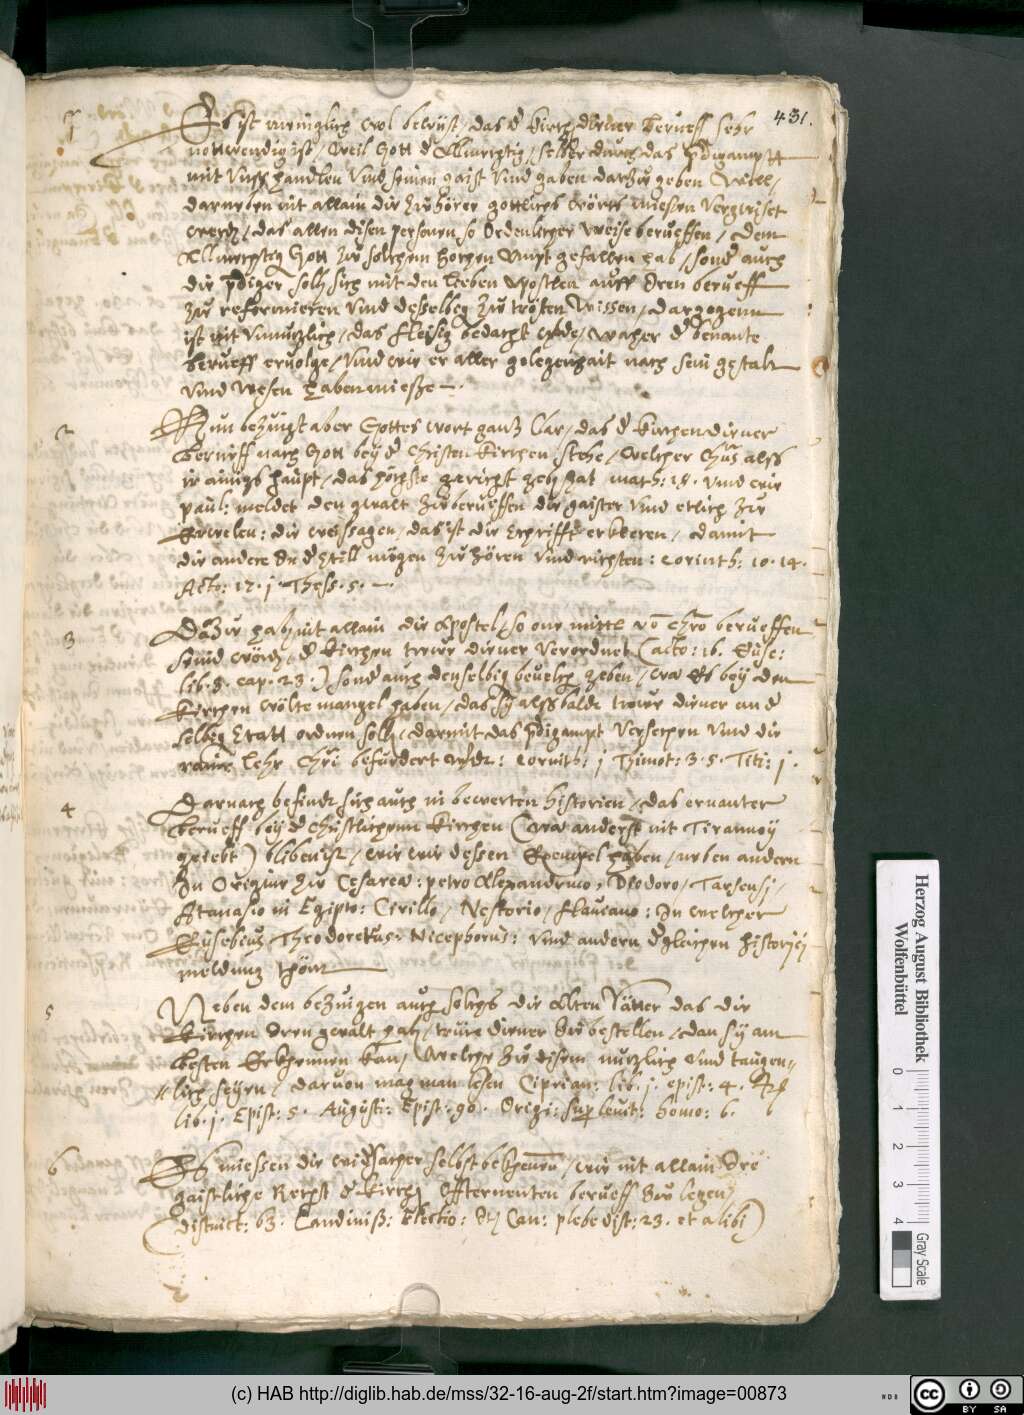 431.
1
Es ist meniglich wol bewüst, das d kirchen diener Berueff sehr
nottwendig ist, weil Gott d Allmechtig, selber durch das predigampt
mit unß handlen und seinen gaist und gaben darzu geben will,
darneben nit allain die zuhörer göttlichs worts miesen vergwiset
werden, das allen disen personen so Ordenlicher weise berueffen, dem
Allmechtigen Gott zu solchem hochen Ampt gefallen hab, sonder auch
die prediger sollen sich mit den lieben Apostlen auff Iren berueff
zu referieren und desselben zu trösten wissen, dargegenn
ist nit unnutzlich, das fleisig bedacht werde, waher d benante
berueff ervolge, und wie er aller gelegenhait nach sein gestalt
und wesen haben miesse.
2
Nun bezeugt aber Gottes wort gantz klar, das d kirchendiener
berueff nach Gott bey d Christen kirchen stehe, welcher Christus alss
ir ainigs haupt, das höchste gericht geben hat Math: 18. und wie
paul: meldet den gwalt zu berueffen die gaister und etlich zu
Erwelen: die weissagen, das ist die schrifft erkleeren, damit
die andere In d still mögen zu hören und richten: Corinth: 10. 14.
Acto: 17. 1 Thess. 5.
3
Dazu haben nit allain die Apostel, so one mittl von Christo berueffen
seind worden, d kirchen trewe diener verordnet (acto: 16. Euse:
lib. 3. cap. 23:) sonder auch denselbigen bevelch geben, wa es bey den
kirchen wölte mangel haben, das sy alssbalde trewe diener an d
selben statt ordnen sollen, darmit das predigampt versechen und die
raine lehr Christi befürdert werde: Corinth: 1 Thimot: 3. 5. Titi: 1.
4
Darnach befindt sich auch in bewerten historien, das ernanter
berueff bey d Christlichenn kirchen (wa anderst nit Tiranney
geiebt) bliben ist, wie wir dessen Exempel haben, neben andern
In Origine zu Cesarea: petro Alexandrino, Diodoro, Tarsensi,
Atanasio in Egipto: Cirillo, Nestorio, flaviano: In welcher
Eusebius Theodoretus, Nicephorus: und andern dgleichen historici
meldung thönn
5
Neben dem bezeugen auch solchs die Alten Vätter das die
kirchen Iren gewalt hab, trewe diener zu bestellen, dan sy am
besten Erkhennen kan, welche zu disem nutzlich und taugen-
lich seyen, darvon mag man lesen Ciprian: lib. 1. epist: 4. Itē
lib. 1. Epist: 5. Augusti: Epist: 90. Origi: super levit: homo: 6.
6
Es miessen die widsacher selbst bekhennen, wie nit allain Ire
gaistliche Recht d kirchen Offternenten berueff zu legen
(distinct: 63. Landiniß: Electio: Itē Can: plebe dist: 23. et alibi)
Herzog August Bibliothek
Wolfenbüttel
0 1 2 3 4
Gray Scale
(c) HAB http://diglib.hab.de/mss/32-16-aug-2f/start.htm?image=00873
cc BY SA